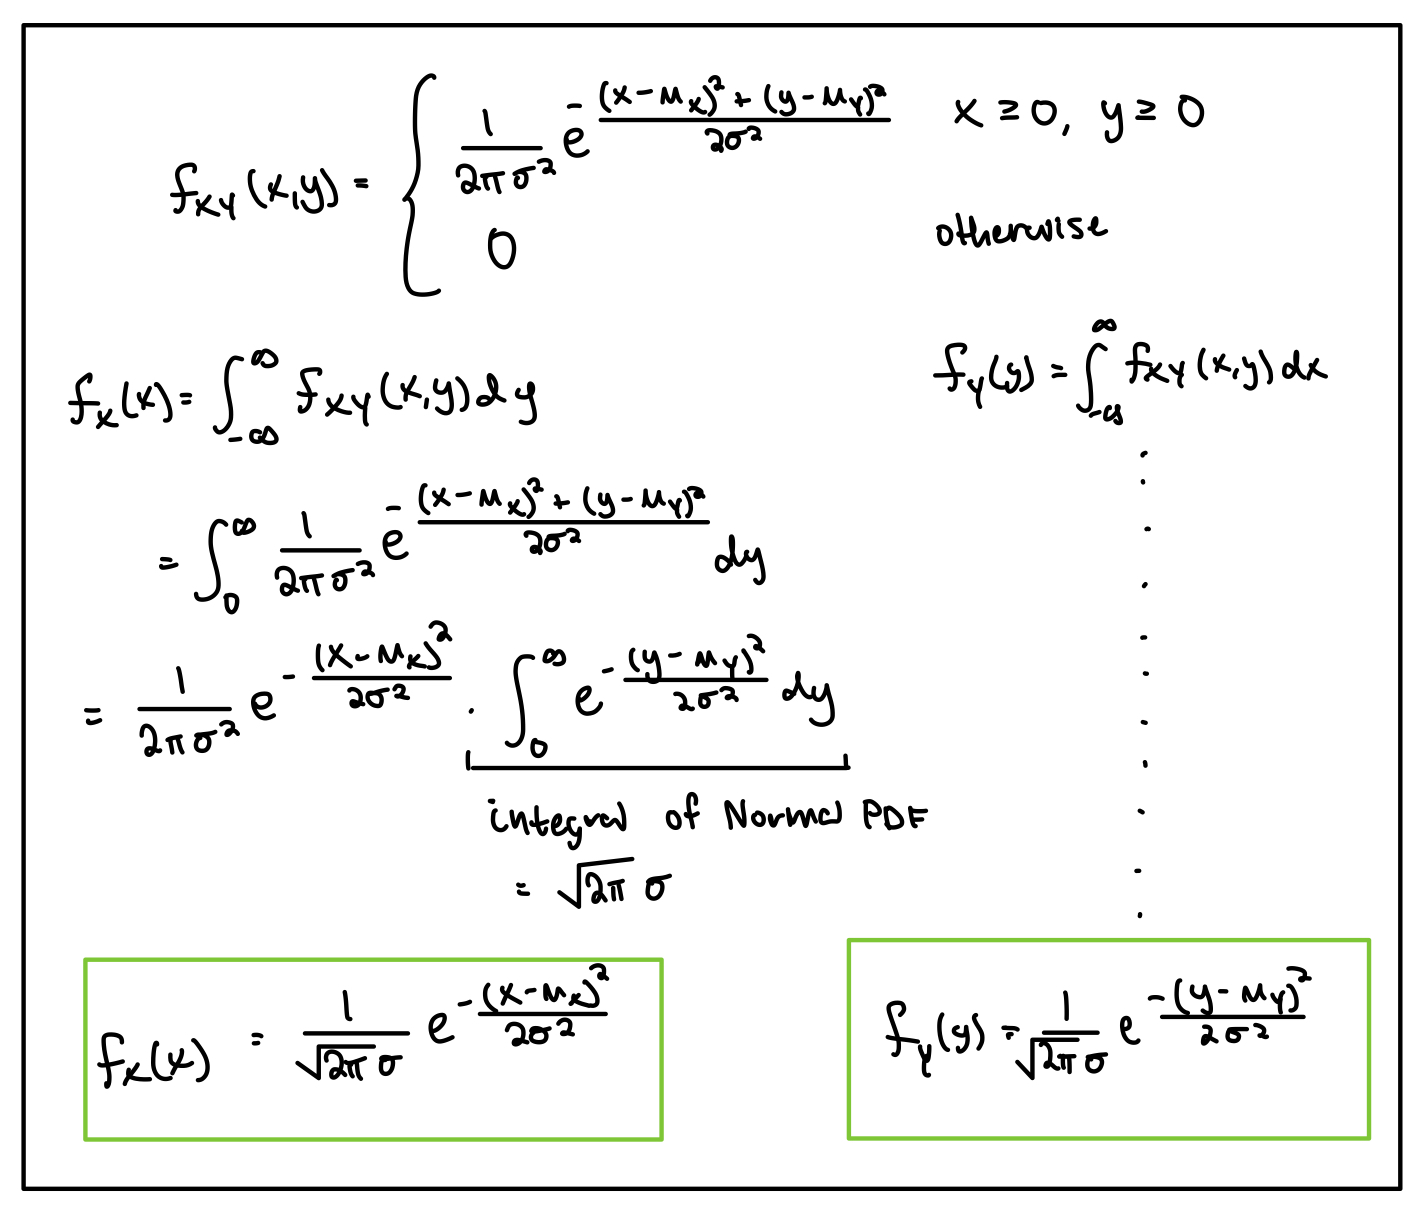 f_{XY}(x,y) = { \frac{1}{2πσ²} e^{-\frac{(x-μ_X)² + (y-μ_Y)²}{2σ²}}   x ≥ 0, y ≥ 0
0   otherwise
f_X(x) = ∫_{-∞}^{∞} f_{XY}(x,y) dy
= ∫_0^∞ \frac{1}{2πσ²} e^{-\frac{(x-μ_X)² + (y-μ_Y)²}{2σ²}} dy
= \frac{1}{2πσ²} e^{-\frac{(x-μ_X)²}{2σ²}} · ∫_0^∞ e^{-\frac{(y-μ_Y)²}{2σ²}} dy
integral of Normal PDF
= √(2π) σ
f_X(x) = \frac{1}{√(2π) σ} e^{-\frac{(x-μ_X)²}{2σ²}}
f_Y(y) = ∫_{-∞}^{∞} f_{XY}(x,y) dx
f_Y(y) = \frac{1}{√(2π) σ} e^{-\frac{(y-μ_Y)²}{2σ²}}